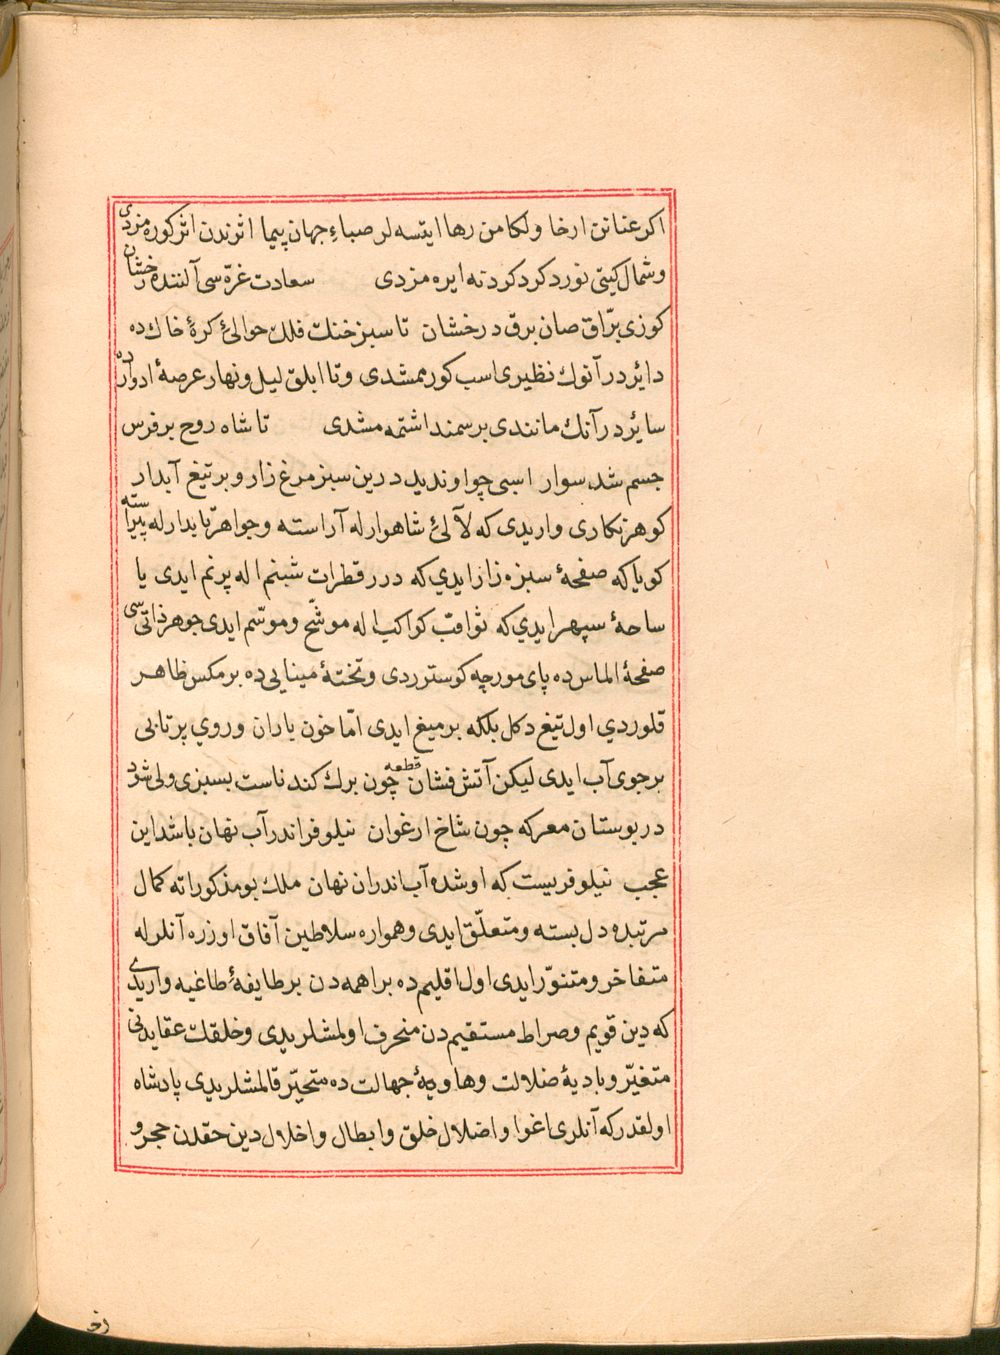 اكر عناتن ارخا ولكامن رها ايتسه لر صباءِ جهان پيما اثرندن اثر كوره مزدى
وشمال كيتى نورد كرد كردته ايره مزدى سعادت غرّه سى آلننده رخشان
كوزى برّاق صان برق درخشان تا سبز خنك فلك حوالئ كرۀ خاك ده
دايردر آنوك نظيرى اسب كورممشدى وتا ابلق ليل ونهار عرصۀ ادوارده
سايردر آنك مانندى بر سمند اشتمه مشدى تا شاه روح بر فرس
جسم شد سوار اسبى چو اونديد درين سبز مرغزار وبر تيغ آبدار
كوهر نكارى واريدى كه لآلئ شاهوارله آراسته وجواهر تابدارله پيراسته
كويا كه صفحۀ سبزه زار ايدي كه درر قطرات شبنم اله پرنم ايدى يا
ساحۀ سپهر ايدي كه ثواقب كواكب اله موشّح وموسّم ايدى جوهر ذاتى سى
صفحۀ الماس ده پاى مورچه كوستردى وتختۀ مينايى ده بر مكس ظاهر
قلوردي اول تيغ دكل بلكه بر ميغ ايدى امّا خون باران وروي پرتابى
بر جوى آب ايدى ليكن آتش فشان قطعه چون برك كند ناست بسبزى ولى شود
در بوستان معركه چون شاخ ارغوان نيلوفر اندر آب نهان باشد اين
عجب نيلوفريست كه اوشده آب اندران نهان ملك بو مذكوراته كمال
مرتبده دل بسته ومتعلّق ايدى وهمواره سلاطين آفاق اوزره آنلرله
متفاخر ومتنوّر ايدى اول اقليم ده براهمه دن بر طايفۀ طاغيه واريدى
كه دين قويم وصراط مستقيم دن منحرف اولمشلريدى وخلقك عقايدنى
متغيّر وباديۀ ضلالت وهاويۀ جهالت ده متحيّر قالمشلريدى پادشاه
اولقدر كه آنلرى اغوا واضلال خلق وابطال واخلال دين حقدن حجر و